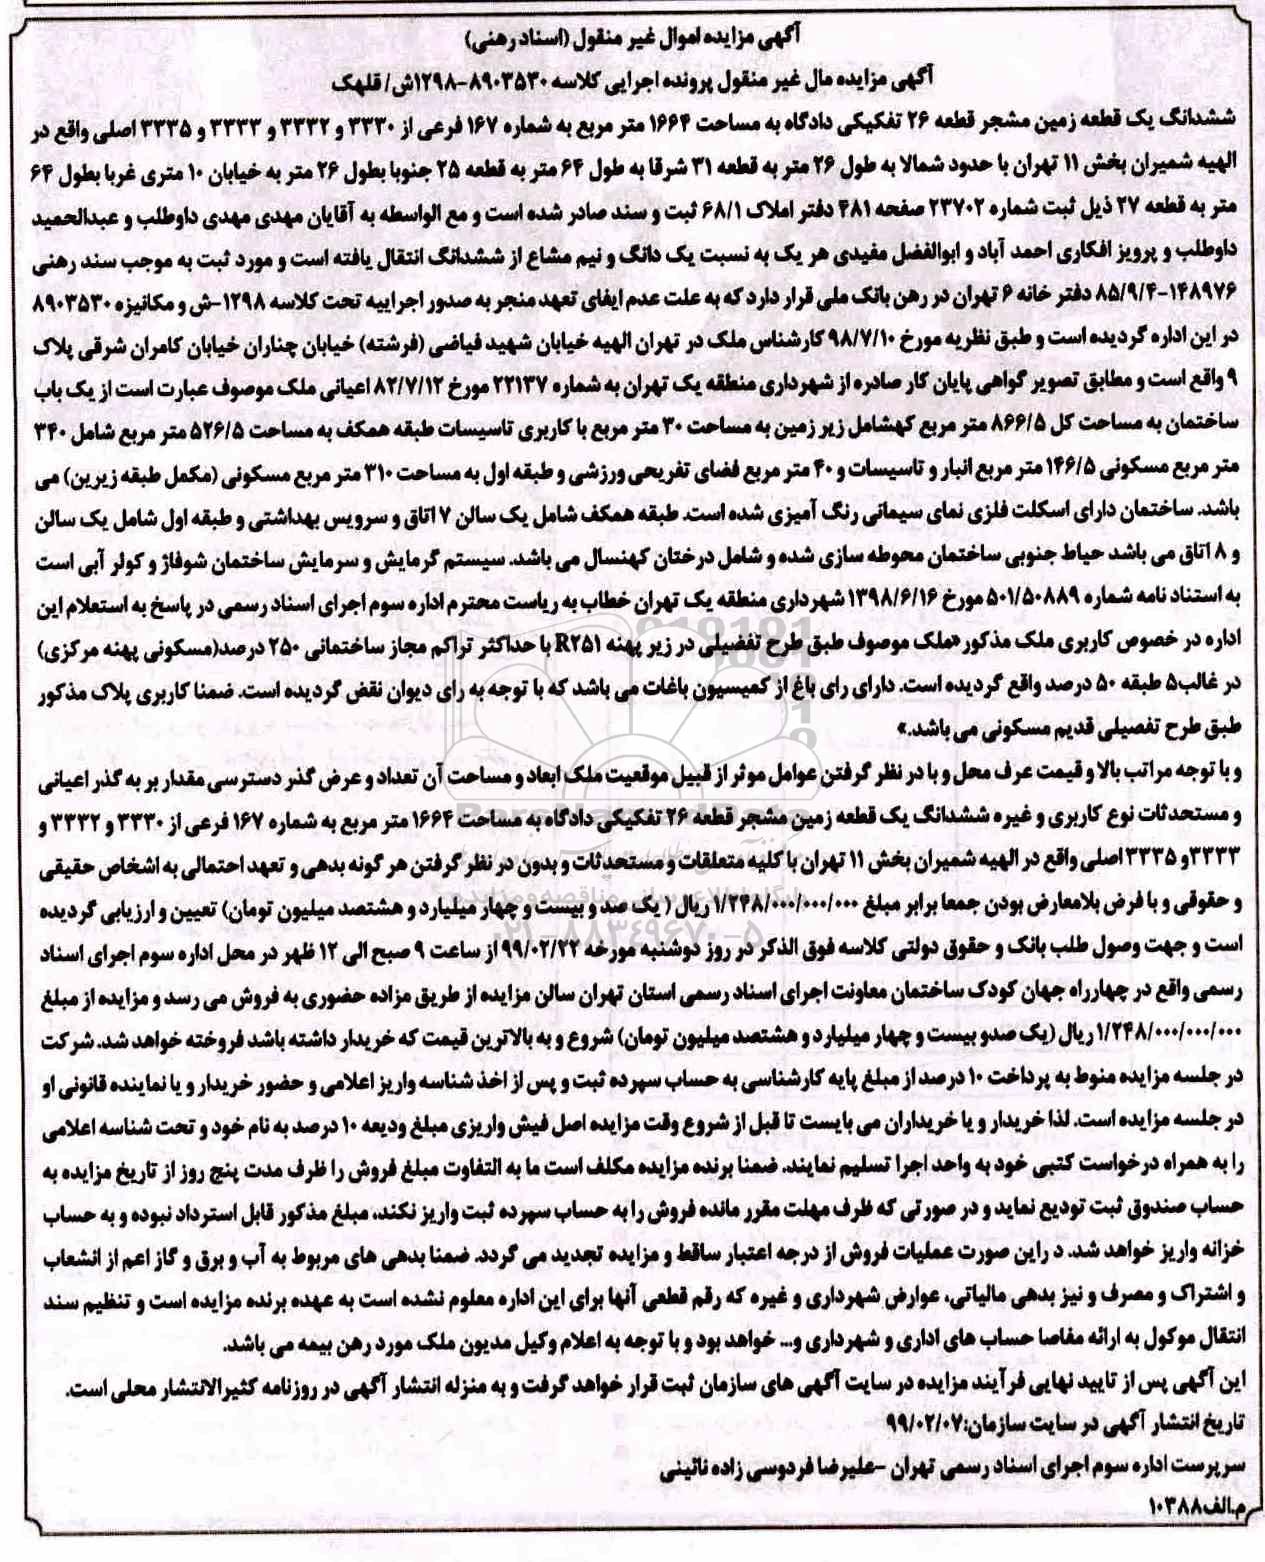 آگهی مزایده اموال غیر منقول (اسناد رهنی)
آگهی مزایده مال غیر منقول پرونده اجرایی کلاسه ۸۹۰۳۵۳۰-۱۲۹۸ش/ قلهک
ششدانگ یک قطعه زمین مشجر قطعه ۲۶ تفکیکی دادگاه به مساحت ۱۶۶۴ متر مربع به شماره ۱۶۷ فرعی از ۳۳۳۰ و ۳۳۳۲ و ۳۳۳۳ و ۳۳۳۵ اصلی واقع در
الهیه شمیران بخش ۱۱ تهران با حدود شمالا به طول ۲۶ متر به قطعه ۳۱ شرقا به طول ۶۴ متر به قطعه ۲۵ جنوبا بطول ۲۶ متر به خیابان ۱۰ متری غربا بطول ۶۴
متر به قطعه ۲۷ ذیل ثبت شماره ۲۳۷۰۲ صفحه ۴۸۱ دفتر املاک ۶۸/۱ ثبت و سند صادر شده است و مع الواسطه به آقایان مهدی مهدی داوطلب و عبدالحمید
داوطلب و پرویز افکاری احمد آباد و ابوالفضل مفیدی هر یک به نسبت یک دانگ و نیم مشاع از ششدانگ انتقال یافته است و مورد ثبت به موجب سند رهنی
۱۴۸۹۷۶-۸۵/۹/۴ دفتر خانه ۶ تهران در رهن بانک ملی قرار دارد که به علت عدم ایفای تعهد منجر به صدور اجراییه تحت کلاسه ۱۲۹۸-ش و مکانیزه ۸۹۰۳۵۳۰
در این اداره گردیده است و طبق نظریه مورخ ۹۸/۷/۱۰ کارشناس ملک در تهران الهیه خیابان شهید فیاضی (فرشته) خیابان چناران خیابان کامران شرقی پلاک
۹ واقع است و مطابق تصویر گواهی پایان کار صادره از شهرداری منطقه یک تهران به شماره ۲۲۱۳۷ مورخ ۸۲/۷/۱۲ اعیانی ملک موصوف عبارت است از یک باب
ساختمان به مساحت کل ۸۶۶/۵ متر مربع کهشامل زیر زمین به مساحت ۳۰ متر مربع با کاربری تاسیسات طبقه همکف به مساحت ۵۲۶/۵ متر مربع شامل ۳۴۰
متر مربع مسکونی ۱۴۶/۵ متر مربع انبار و تاسیسات و ۴۰ متر مربع فضای تفریحی ورزشی و طبقه اول به مساحت ۳۱۰ متر مربع مسکونی (مکمل طبقه زیرین) می
باشد. ساختمان دارای اسکلت فلزی نمای سیمانی رنگ آمیزی شده است. طبقه همکف شامل یک سالن ۷ اتاق و سرویس بهداشتی و طبقه اول شامل یک سالن
و ۸ اتاق می باشد حیاط جنوبی ساختمان محوطه سازی شده و شامل درختان کهنسال می باشد. سیستم گرمایش و سرمایش ساختمان شوفاژ و کولر آبی است
به استناد نامه شماره ۵۰۱/۵۰۸۸۹ مورخ ۱۳۹۸/۶/۱۶ شهرداری منطقه یک تهران خطاب به ریاست محترم اداره سوم اجرای اسناد رسمی در پاسخ به استعلام این
اداره در خصوص کاربری ملک مذکور «ملک موصوف طبق طرح تفضیلی در زیر پهنه R۲۵۱ با حداکثر تراکم مجاز ساختمانی ۲۵۰ درصد(مسکونی پهنه مرکزی)
در غالب۵ طبقه ۵۰ درصد واقع گردیده است. دارای رای باغ از کمیسیون باغات می باشد که با توجه به رای دیوان نقض گردیده است. ضمنا کاربری پلاک مذکور
طبق طرح تفصیلی قدیم مسکونی می باشد.»
و با توجه مراتب بالا و قیمت عرف محل و با در نظر گرفتن عوامل موثر از قبیل موقعیت ملک ابعاد و مساحت آن تعداد و عرض گذر دسترسی مقدار بر به گذر اعیانی
و مستحدثات نوع کاربری و غیره ششدانگ یک قطعه زمین مشجر قطعه ۲۶ تفکیکی دادگاه به مساحت ۱۶۶۴ متر مربع به شماره ۱۶۷ فرعی از ۳۳۳۰ و ۳۳۳۲ و
۳۳۳۳و ۳۳۳۵ اصلی واقع در الهیه شمیران بخش ۱۱ تهران با کلیه متعلقات و مستحدثات و بدون در نظر گرفتن هر گونه بدهی و تعهد احتمالی به اشخاص حقیقی
و حقوقی و با فرض بلامعارض بودن جمعا برابر مبلغ ۱/۲۴۸/۰۰۰/۰۰۰/۰۰۰ ریال ( یک صد و بیست و چهار میلیارد و هشتصد میلیون تومان) تعیین و ارزیابی گردیده
است و جهت وصول طلب بانک و حقوق دولتی کلاسه فوق الذکر در روز دوشنبه مورخه ۹۹/۰۲/۲۲ از ساعت ۹ صبح الی ۱۲ ظهر در محل اداره سوم اجرای اسناد
رسمی واقع در چهارراه جهان کودک ساختمان معاونت اجرای اسناد رسمی استان تهران سالن مزایده از طریق مزاده حضوری به فروش می رسد و مزایده از مبلغ
۱/۲۴۸/۰۰۰/۰۰۰/۰۰۰ ریال (یک صدو بیست و چهار میلیارد و هشتصد میلیون تومان) شروع و به بالاترین قیمت که خریدار داشته باشد فروخته خواهد شد. شرکت
در جلسه مزایده منوط به پرداخت ۱۰ درصد از مبلغ پایه کارشناسی به حساب سپرده ثبت و پس از اخذ شناسه واریز اعلامی و حضور خریدار و یا نماینده قانونی او
در جلسه مزایده است. لذا خریدار و یا خریداران می بایست تا قبل از شروع وقت مزایده اصل فیش واریزی مبلغ ودیعه ۱۰ درصد به نام خود و تحت شناسه اعلامی
را به همراه درخواست کتبی خود به واحد اجرا تسلیم نمایند. ضمنا برنده مزایده مکلف است ما به التفاوت مبلغ فروش را ظرف مدت پنج روز از تاریخ مزایده به
حساب صندوق ثبت تودیع نماید و در صورتی که ظرف مهلت مقرر مانده فروش را به حساب سپرده ثبت واریز نکند، مبلغ مذکور قابل استرداد نبوده و به حساب
خزانه واریز خواهد شد. د راین صورت عملیات فروش از درجه اعتبار ساقط و مزایده تجدید می گردد. ضمنا بدهی های مربوط به آب و برق و گاز اعم از انشعاب
و اشتراک و مصرف و نیز بدهی مالیاتی، عوارض شهرداری و غیره که رقم قطعی آنها برای این اداره معلوم نشده است به عهده برنده مزایده است و تنظیم سند
انتقال موکول به ارائه مفاصا حساب های اداری و شهرداری و... خواهد بود و با توجه به اعلام وکیل مدیون ملک مورد رهن بیمه می باشد.
این آگهی پس از تایید نهایی فرآیند مزایده در سایت آگهی های سازمان ثبت قرار خواهد گرفت و به منزله انتشار آگهی در روزنامه کثیرالانتشار محلی است.
تاریخ انتشار آگهی در سایت سازمان:۹۹/۰۲/۰۷
سرپرست اداره سوم اجرای اسناد رسمی تهران -علیرضا فردوسی زاده نائینی
م.الف۱۰۳۸۸
۰۲۱-۸۸۳۴۹۶۷۰-۵